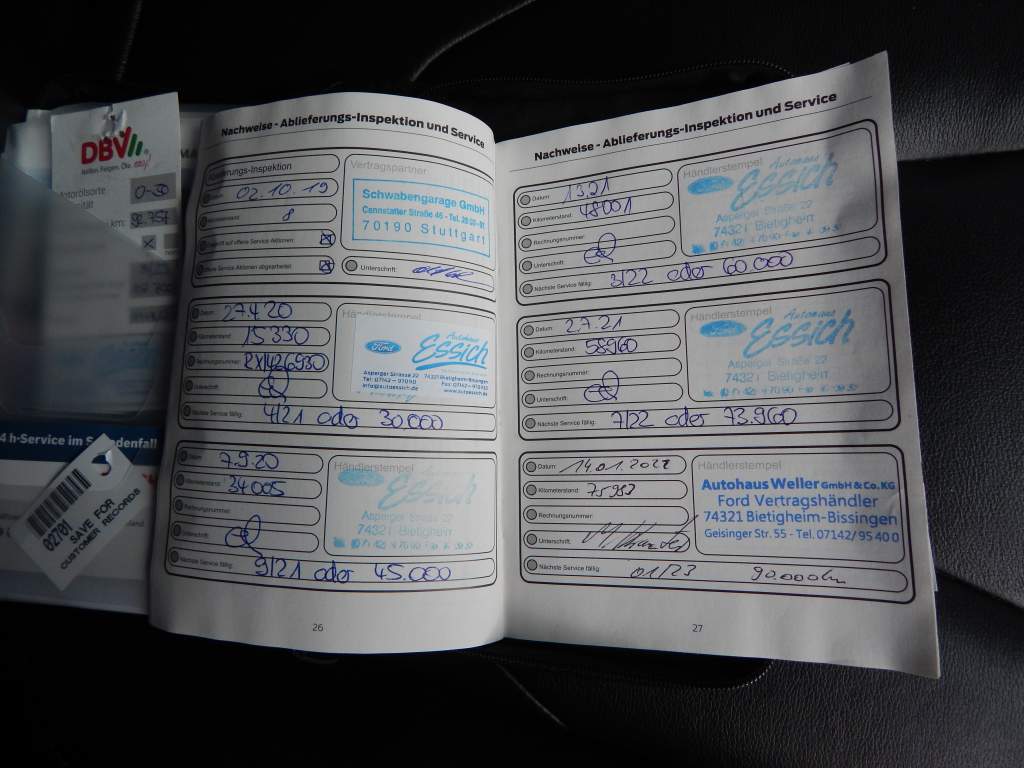 DBV
Motorölsorte
0-30
km: 92.754
4 h-Service im Sc
denfall
027101
SAVE FOR
CUSTOMER RECORDS
Nachweise - Ablieferungs-Inspektion und Service
Ablieferungs-Inspektion
02.10.19
8
offene Service Aktionen:
Service Aktionen abgearbeitet:
Vertragspartner
Schwabengarage GmbH
Cannstatter Straße 46 - Tel.
70190 Stuttgart
Unterschrift:
Datum: 27.4.20
Kilometerstand: 15330
Rechnungsnummer:
Unterschrift:
Händlerstempel
Ford
Autohaus
Essich
Asperger Strasse 22 74321 Bietigheim-Bissingen
Nächste Service fällig: 4/21 oder 30.000
Datum: 7.9.20
Kilometerstand: 34005
Rechnungsnummer:
Unterschrift:
Händlerstempel
Autohaus
Essich
Asperger Straße 22
74321 Bietigheim
Nächste Service fällig: 9/21 oder 45.000
26
Nachweise - Ablieferungs-Inspektion und Service
Datum: 1321
Kilometerstand: 48001
Rechnungsnummer:
Unterschrift:
Händlerstempel
Ford
Autohaus
Essich
Asperger Straße 22
74321 Bietigheim
Nächste Service fällig: 3/22 oder 60.000
Datum: 2.7.21
Kilometerstand: 58960
Rechnungsnummer:
Unterschrift:
Händlerstempel
Ford
Autohaus
Essich
Asperger Straße 22
74321 Bietigheim
Nächste Service fällig: 7/22 oder 73.960
Datum: 14.01.2022
Kilometerstand: 75953
Rechnungsnummer:
Unterschrift:
Händlerstempel
Autohaus Weller GmbH & Co. KG
Ford Vertragshändler
74321 Bietigheim-Bissingen
Geisinger Str. 55 - Tel. 07142/95 40 0
Nächste Service fällig: 01/23 90.000km
27